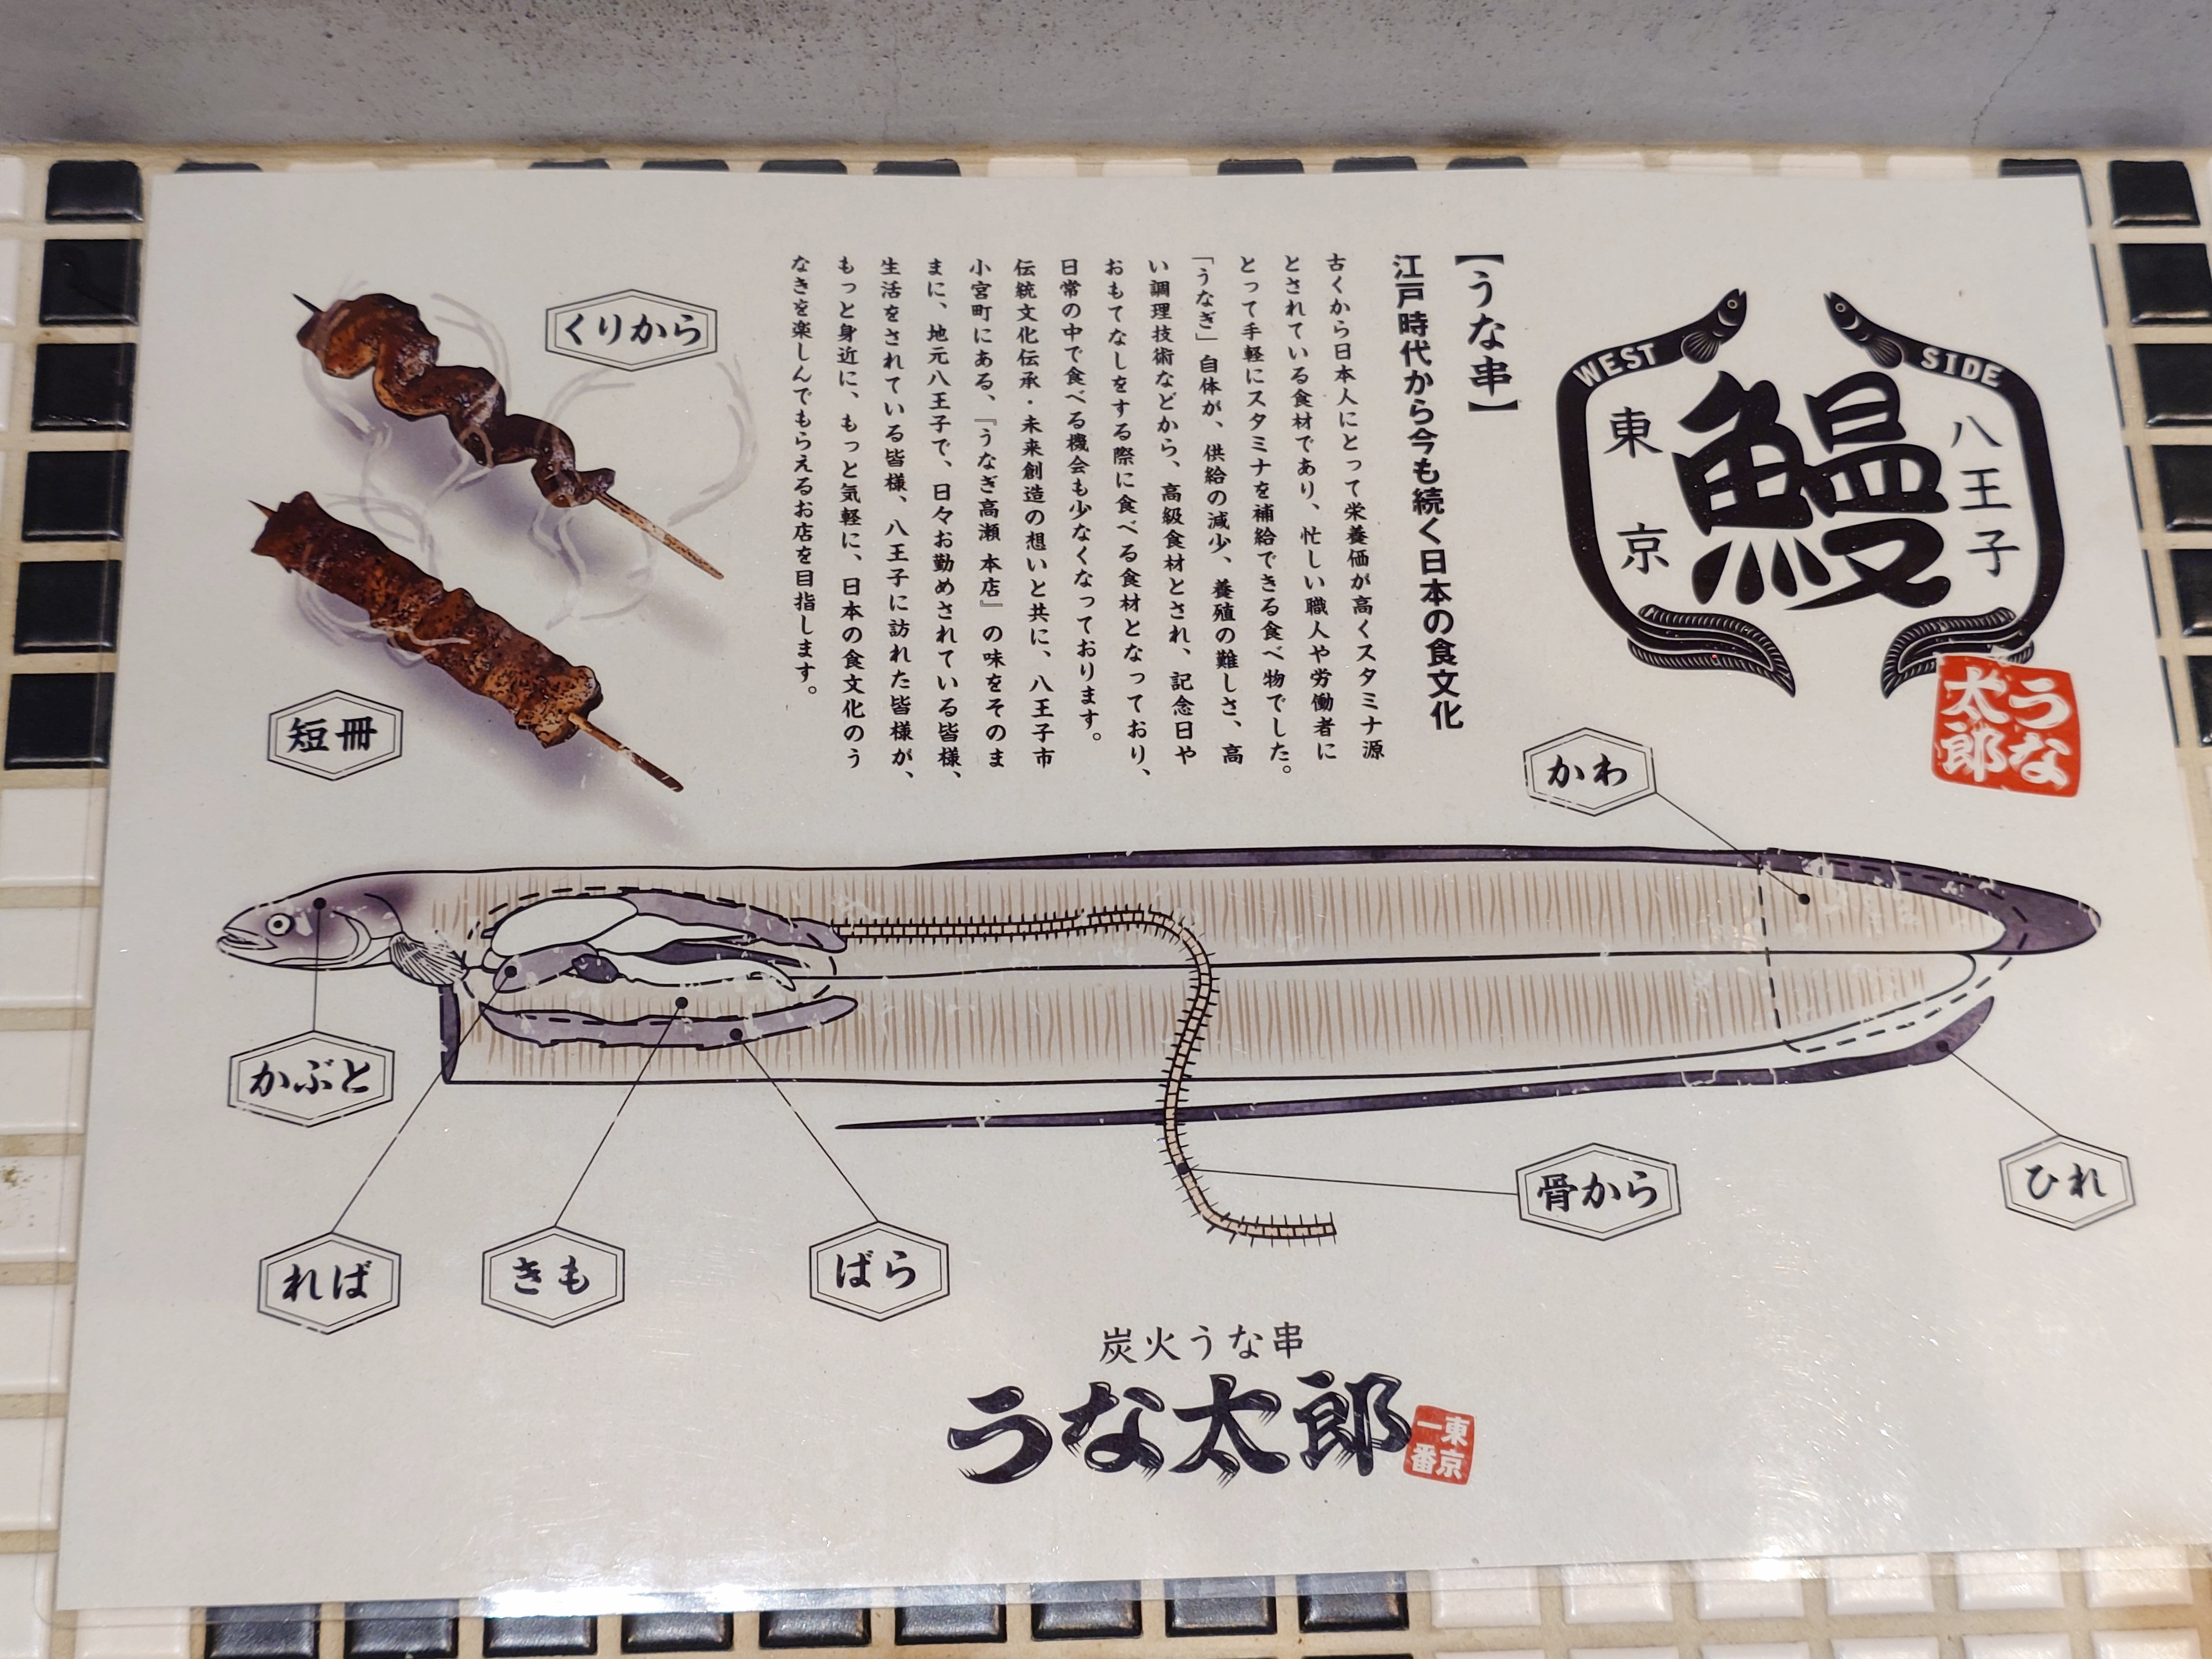 WEST SIDE
八王子
鰻
東京
うな
太郎
【うな串】
江戸時代から今も続く日本の食文化
古くから日本人にとって栄養価が高くスタミナ源
とされている食材であり、忙しい職人や労働者に
とって手軽にスタミナを補給できる食べ物でした。
「うなぎ」自体が、供給の減少、養殖の難しさ、高
い調理技術などから、高級食材とされ、記念日や
おもてなしをする際に食べる食材となっており、
日常の中で食べる機会も少なくなっております。
伝統文化伝承・未来創造の想いと共に、八王子市
小宮町にある、『うなぎ高瀬 本店』の味をそのま
まに、地元八王子で、日々お勤めされている皆様、
生活をされている皆様、八王子に訪れた皆様が、
もっと身近に、もっと気軽に、日本の食文化のう
なきを楽しんでもらえるお店を目指します。
くりから
短冊
かわ
かぶと
れば
きも
ばら
骨から
ひれ
炭火うな串
うな太郎
東京
一番